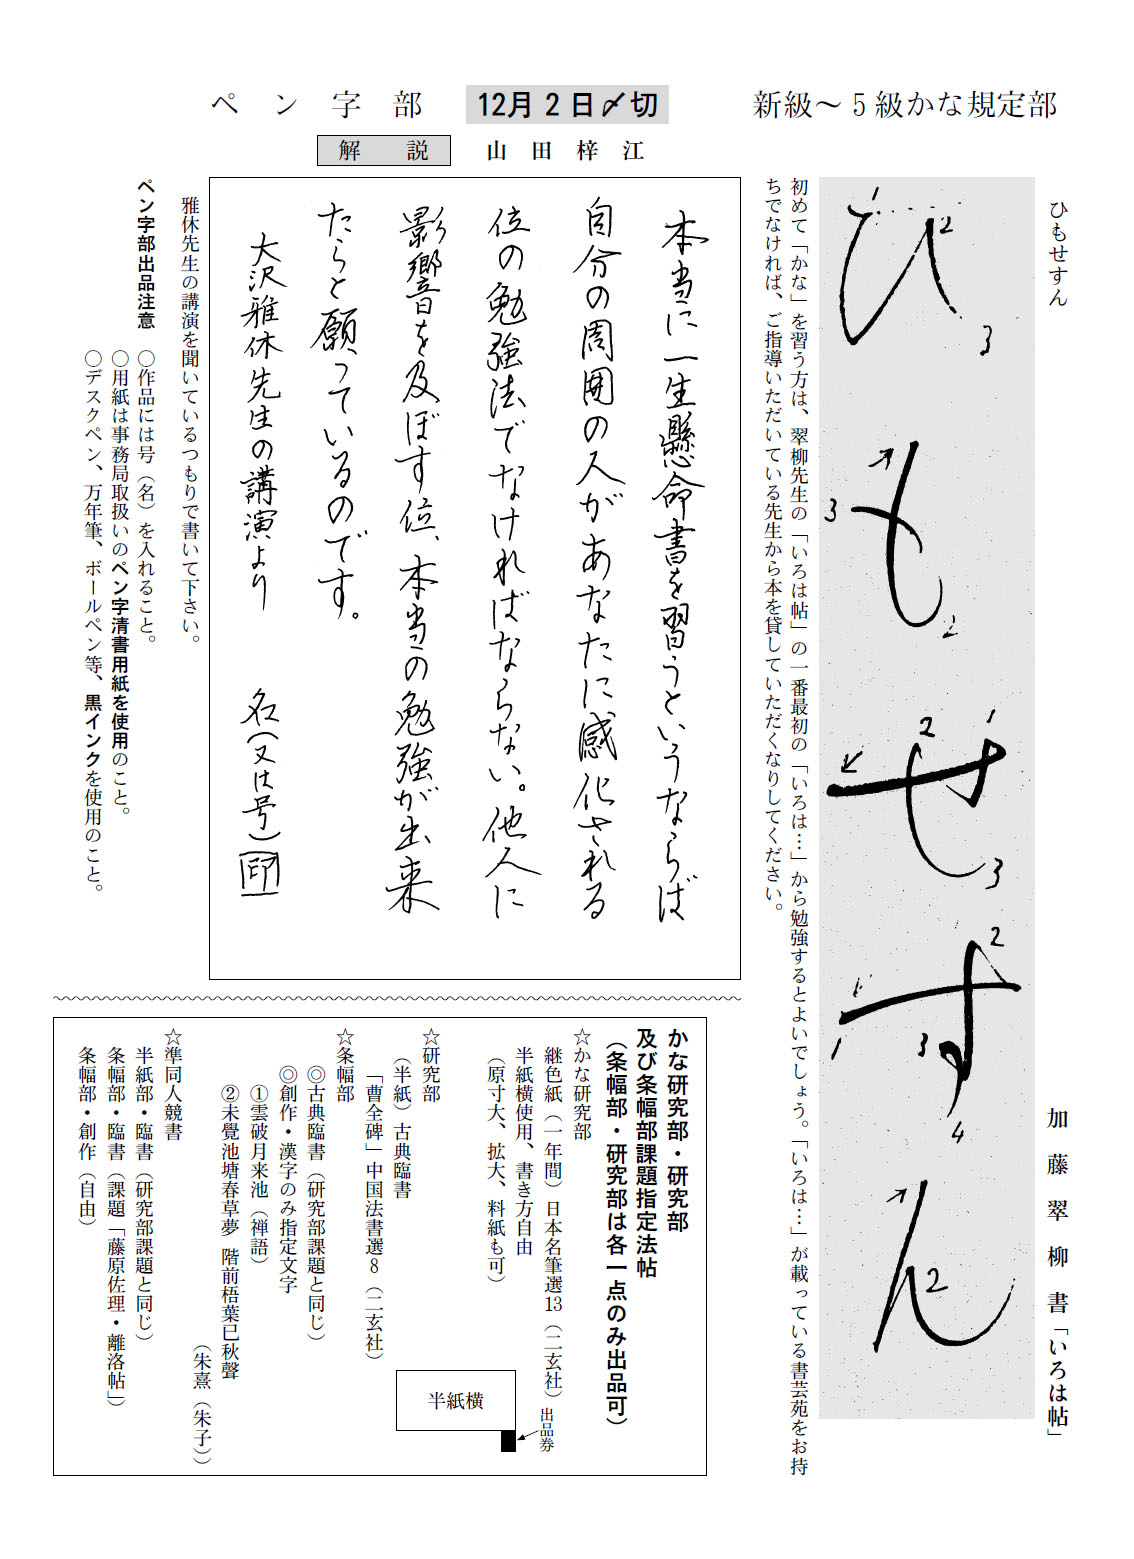 新級～5級かな規定部
ひもせすん
加藤翠柳書「いろは帖」
ひ
も
せ
す
ん
初めて「かな」を習う方は、翠柳先生の「いろは帖」の一番最初の「いろは…」から勉強するとよいでしょう。「いろは…」が載っている書芸苑をお持
ちでなければ、ご指導いただいている先生から本を貸していただくなりしてください。
ペン字部
12月2日〆切
解説
山田梓江
本当に一生懸命書を習うというならば
自分の周囲の人があなたに感化される
位の勉強法でなければならない。他人に
影響を及ぼす位、本当の勉強が出来
たらと願っているのです。
大沢雅休先生の講演より 名(又は号)印
雅休先生の講演を聞いているつもりで書いて下さい。
ペン字部出品注意 ○作品には号（名）を入れること。
○用紙は事務局取扱いのペン字清書用紙を使用のこと。
○デスクペン、万年筆、ボールペン等、黒インクを使用のこと。
かな研究部・研究部
及び条幅部課題指定法帖
（条幅部・研究部は各一点のみ出品可）
☆かな研究部
継色紙（一年間）日本名筆選13（二玄社）
半紙横使用、書き方自由
（原寸大、拡大、料紙も可）
半紙横
出品券
☆研究部
（半紙）古典臨書
「曹全碑」中国法書選8（二玄社）
☆条幅部
◎古典臨書（研究部課題と同じ）
◎創作・漢字のみ指定文字
①雲破月来池（禅語）
②未覺池塘春草夢 階前梧葉巳秋聲
（朱熹（朱子））
☆準同人競書
半紙部・臨書（研究部課題と同じ）
条幅部・臨書（課題「藤原佐理・離洛帖」）
条幅部・創作（自由）